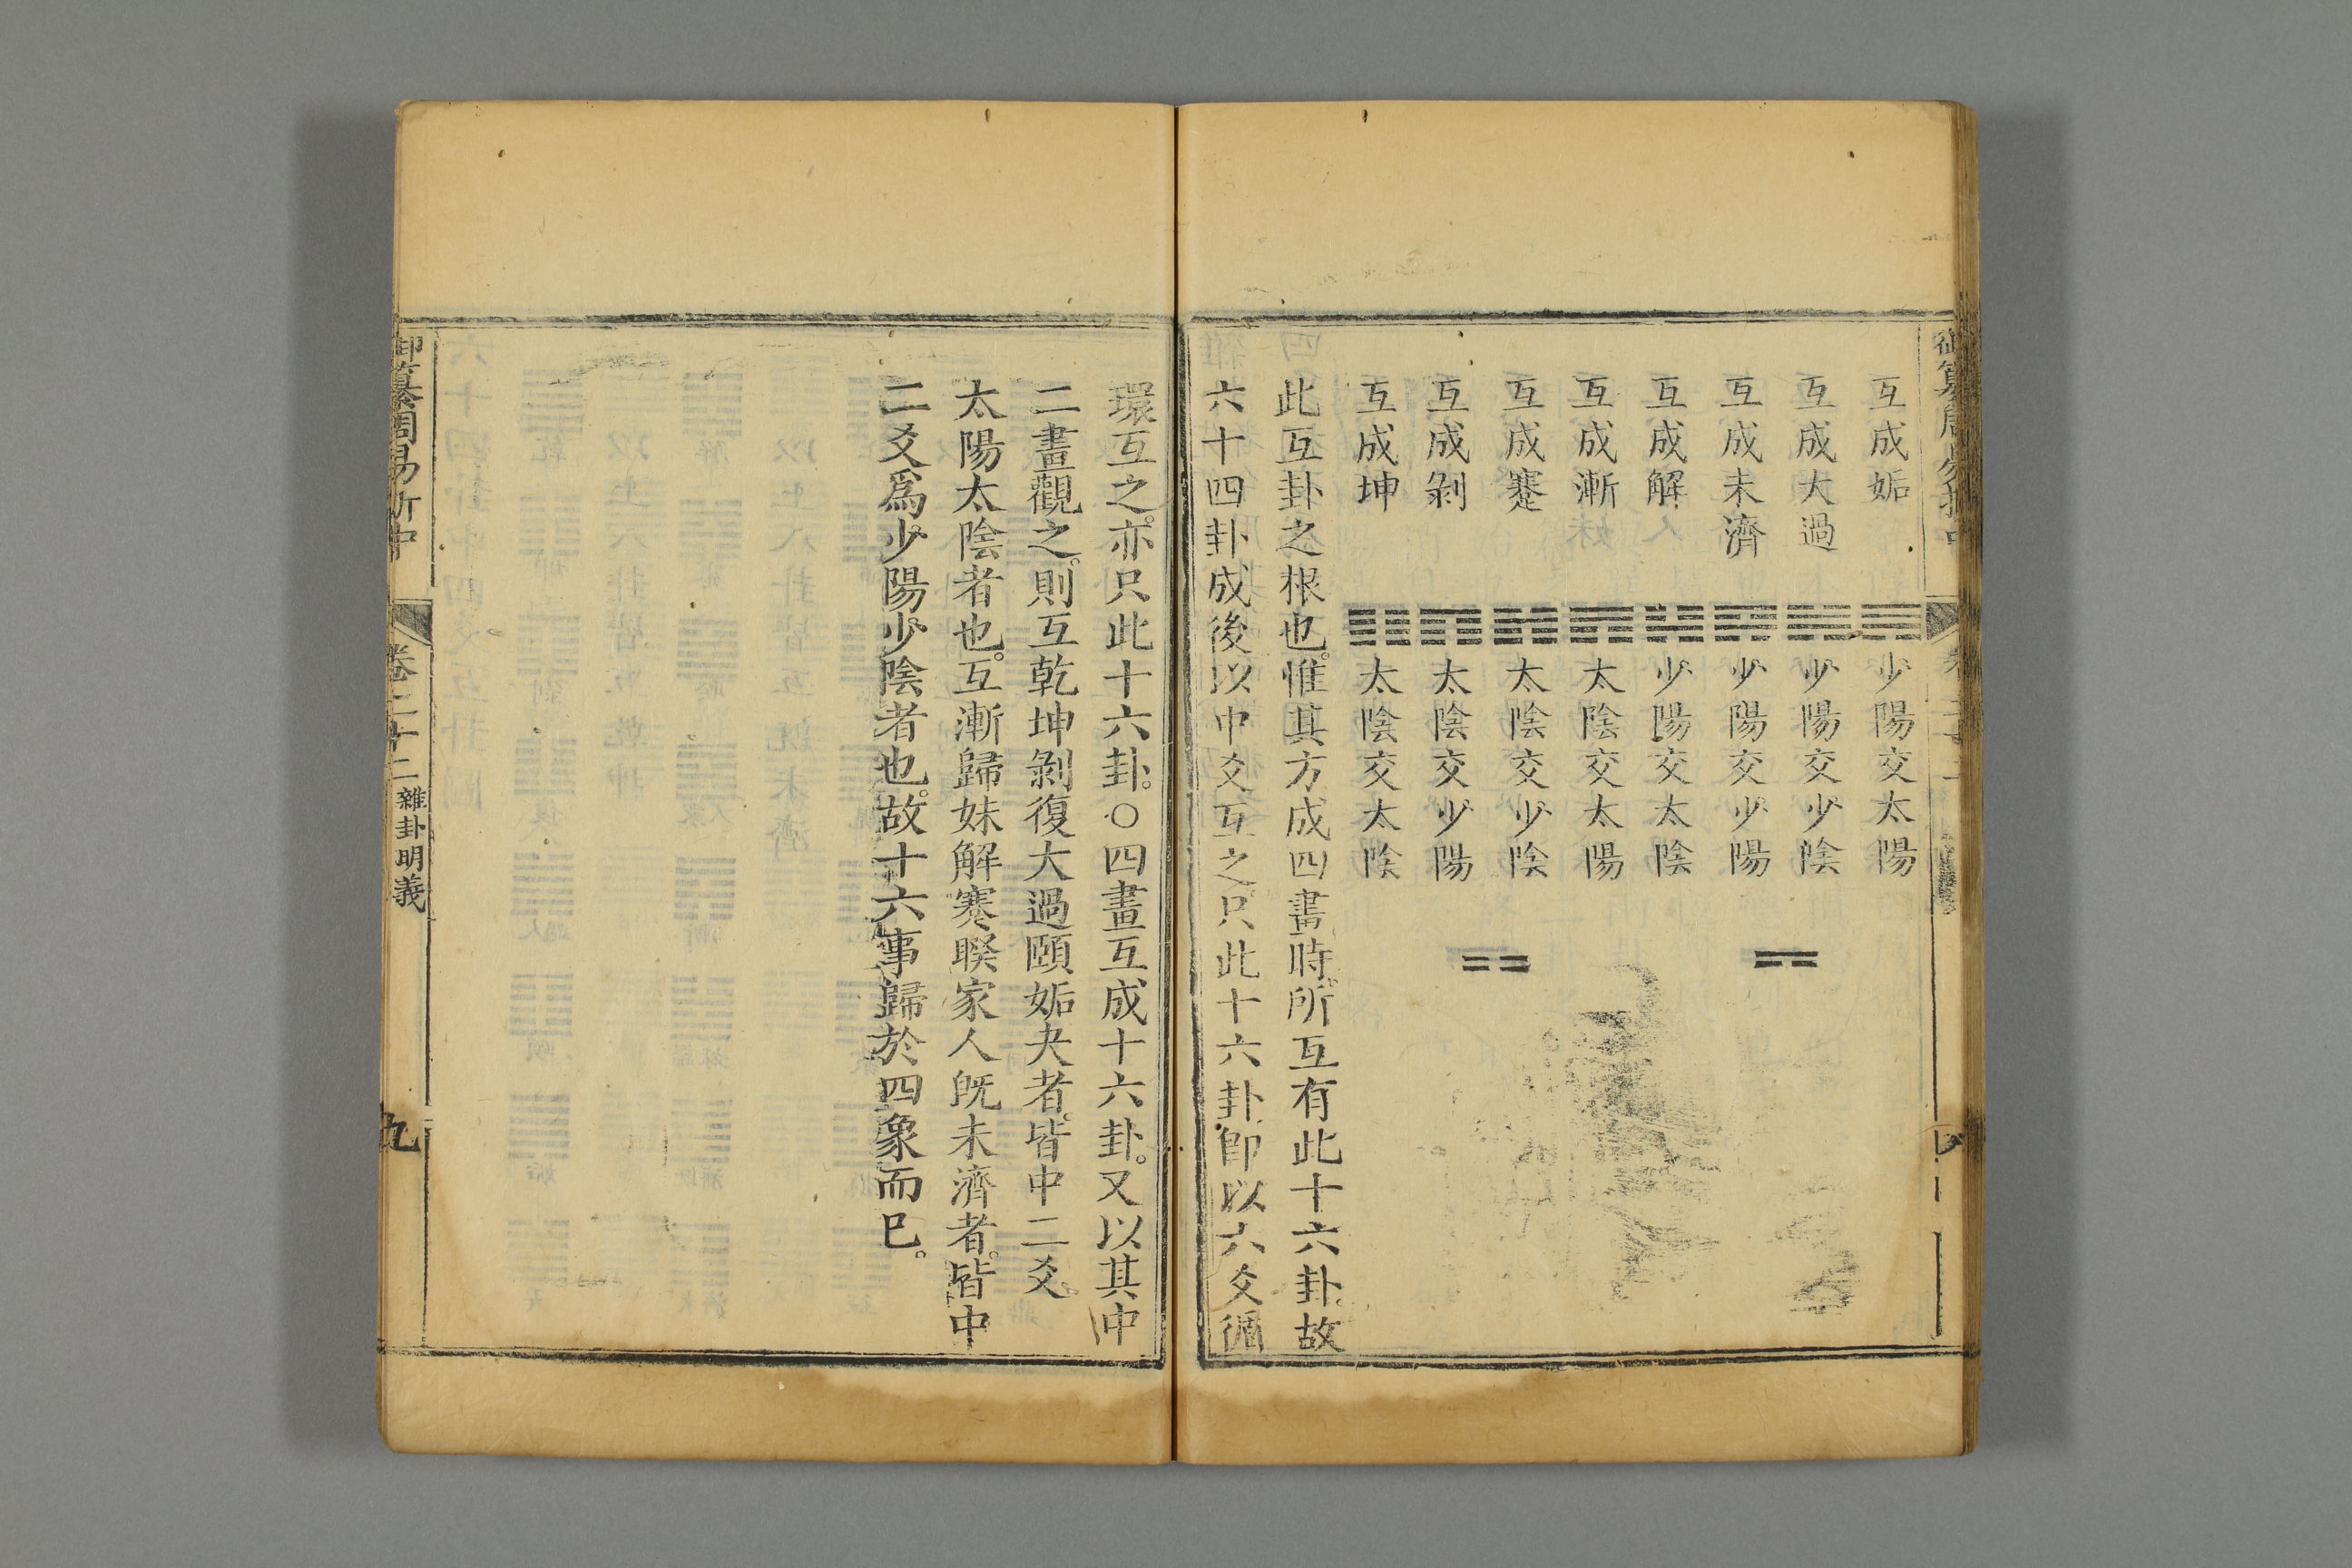 互成姤 少陽交太陽
互成大過 少陽交少陰
互成未濟 少陽交少陽
互成解 少陽交太陰
互成漸 太陰交太陽
互成蹇 太陰交少陰
互成剝 太陰交少陽
互成坤 太陰交太陰
此互卦之根也。惟其方成四畫時。所互有此十六卦。故
六十四卦成後。以中爻互之。只此十六卦。卽以六爻循
環互之。亦只此十六卦。○四畫互成十六卦。又以其中
二畫觀之。則互乾坤剝復大過頤姤夬者。皆中二爻。
太陽太陰者也。互漸歸妹解蹇睽家人旣未濟者。皆中
二爻爲少陽少陰者也。故十六事歸於四象而已。
御纂周易折中 卷二十二 雜卦明義 九